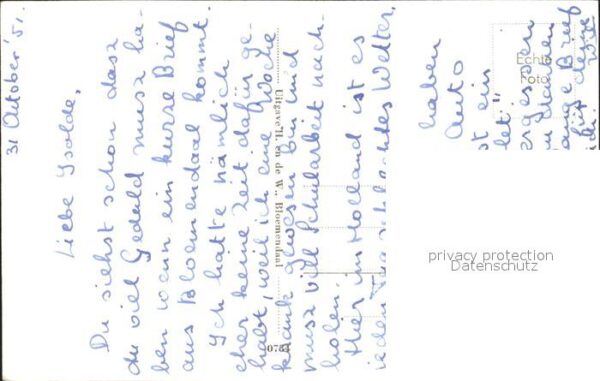 31 Oktober '51.
Liebe Isolde,
Du siehst schon dasz
du viel Geduld musz ha-
ben wenn ein kurze Brief
aus Bloemendaal kommt.
Ich hatte nämlich
eher keine Zeit dafür ge-
habt, weil ich eine Woche
krank gewesen bin und
musz viel Schularbeit nach-
holen.
Hier in Holland ist es
jeden Tag schlechtes Wetter,
haben
Auto
st ein
let!
ergessen
ange Brief
für deine
ich.
Uitgave H. en de W., Bloemendaal
Echte
Foto
privacy protection
Datenschutz